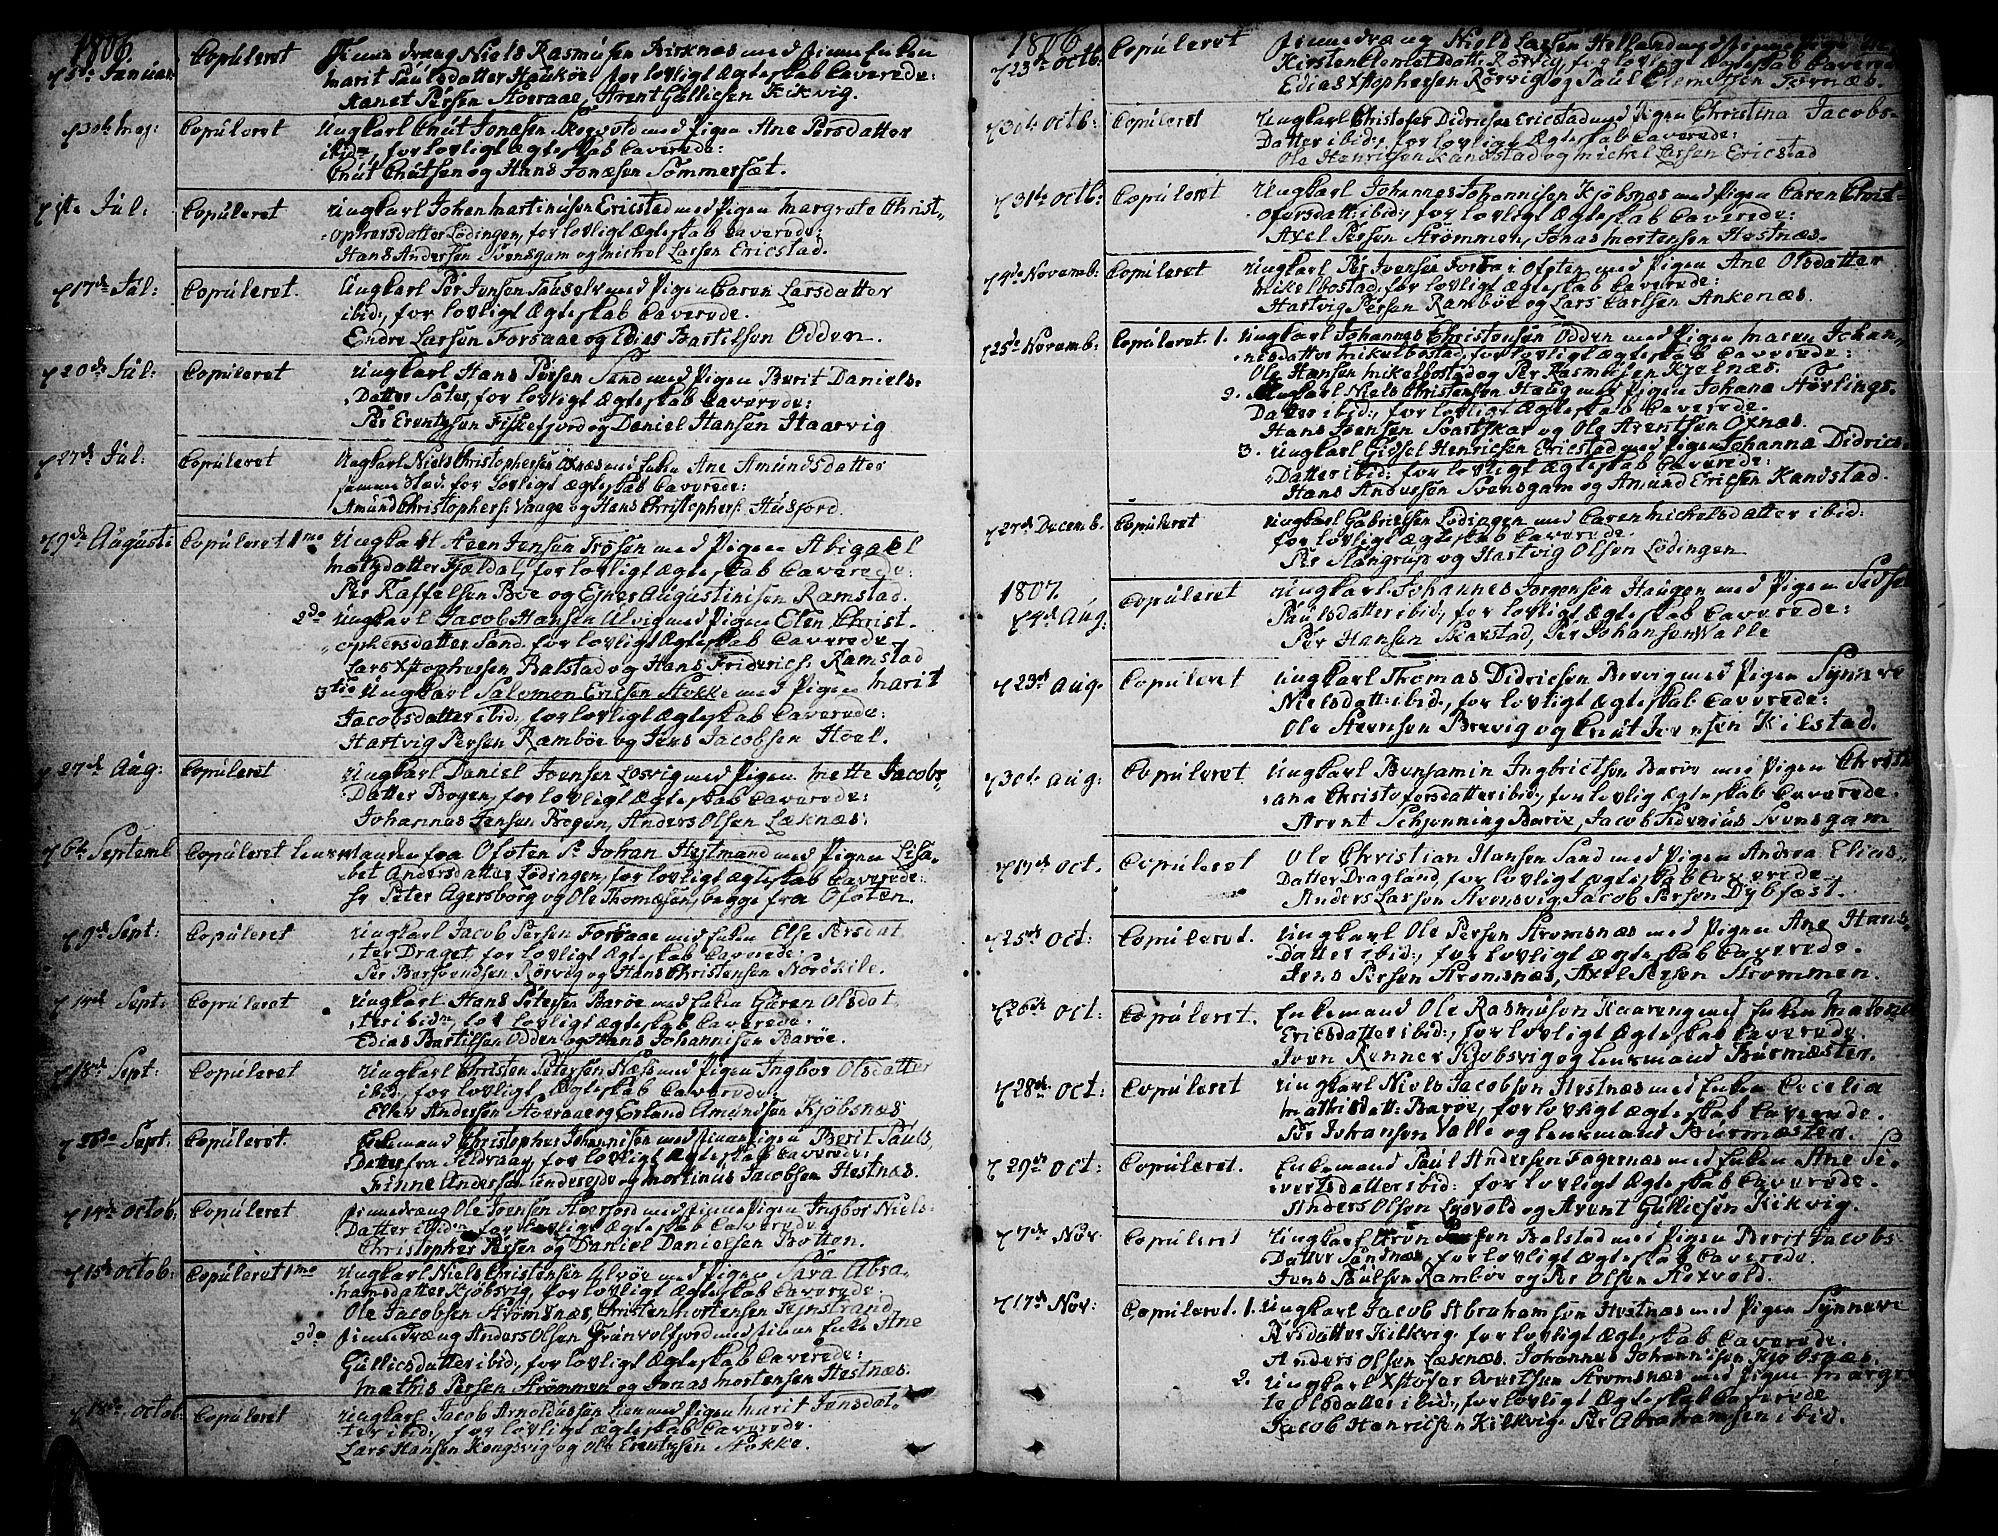 1806.
d 5te Januar Copúleret Finnedræng Niels Rasmúsen Birknæs med finne Enken
Marit Paulsdatter Haukøe, for lovligt Ægteskab Caverede:
Kanet Persen Storaae, Arent Gúllicsen Kikvig.
d 30te Maj: Copúleret Ungkarl Cnút Jonæsen med Pigen Ane Persdatter
ibidm, for lovligt Ægteskab Caverede:
Cnút Cnútsen og Hans Jonæsen Sommersæt.
d 1ste Júl: Copúleret Ungkarl Johan Martinúsen Ericstad med Pigen Margrete Christ-
ophersdatter Lødingen, for lovligt Ægteskab Caverede:
Hans Andersen Svensgam og Michel Larsen Ericstad.
d 17de Júl: Copúleret. Ungkarl Per Jensen med Pigen Caren Larsdatter
ibid:, for lovligt Ægteskab Caverede.
Endre Larsen Forsaae og Edias Bartilsen Odden.
d 20de Júl: Copúleret Ungkarl Hans Persen Sand med Pigen Berit Daniels-
Datter Sæter, for lovligt Ægteskab Caverede:
Per Erentzsen Fiskefjord og Daniel Hansen Haarvig
d 27de Júl: Copúleret Ungkarl Niels Christophersen med Enken Ane Amúndsdatter
sammestad, for Lovligt Ægteskab Caverede:
Amúnd Christophers: Vaage og Hans Christophers: Húsfjord.
d 9de Aúgústi Copúleret 1mo Ungkarl Aren Jensen Trøsen med Pigen Abigael
Matzdatter Fjældal, for lovligt Ægteskab Caverede:
Per Raffelsen Bøe og Ejner Aúgústinúsen Ramstad.
2do Ungkarl Jacob Hansen Alvig med Pigen Elen Christ-
ophersdatter Sand, for lovligt Ægteskab Caverede:
Lars Xstophersen Balstad og Hans Friderichs: Ramstad
3tio Ungkarl Salomon Ericsen Stokke med Pigen Marit
Jacobsdatter ibid:, for lovligt Ægteskab Caverede:
Hartvig Persen Rambøe og Jens Jacobsen Hoel.
d 27de Aúg: Copúleret Ungkarl Daniel Joensen Losvig med Pigen Mette Jacobs-
Datter Bogen, for lovligt Ægteskab Caverede:
Johannes Jensen Bogen, Anders Olsen Læknæs:
d 6te Septemb Copúleret Lensmanden fra Ofoten Sr Johan Hejtmand med Pigen Lisa-
bet Andersdatter Lødingen, for lovligt Ægteskab Caverede:
Sr Peter Agersborg og Ole Thomæsen, begge fra Ofoten.
d 9de Sept: Copúleret Ungkarl Jacob Persen Forsaae med Enken Else Persdat-
ter Draget, for lovligt Ægteskab Caverede:
Per Barsvendsen Rørvig og Hans Christensen Nordkile.
d 14de Sept: Copúleret Ungkarl Hans Petersen Barøe med Enken Gúren Olsdat-
ter ibidm, for lovligt Ægteskab Caverede.
Edias Bartilsen Odden og Hans Johannisen Barøe.
d 18de Sept: Copúleret Ungkarl Christen Petersen Næss med Pigen Ingbor Olsdatter
ibid:, for lovligt Ægteskab Caverede:
Eller Andersen Storaae og Erland Amúndsen Kjøbsnæs
d 28de Sept: Copúleret. Enkemand Christopher Johannisen med finne Pigen Berit Pauls-
Datter fra, for lovligt Ægteskab Caverede:
Finne Anders og Mortinus Jacobsen Hestnæs.
d 14de Octob: Copúleret Finnedræng Ole Joensen med finne Pigen Ingbor Niels-
Datter ibidm for lovligt Ægteskab Caverede:
Christopher Persen og Daniel Danielsen Botten.
d 15de Octob: Copúleret 1mo Ungkarl Niels Christensen med Pigen Sara Abra-
hamsdatter Kjøbsvig, for lovligt Ægteskab Caverede.
Ole Jacobsen Strømsnæs Christen Mortensen Finstrand
2do Finnedræng Anders Olsen med finne Enke Ane
Gúllicsdatter ibid:, for lovligt Ægteskab Caverede:
Mathis Persen Strømmen og Jonas Mortensen Hestnæs.
d 18de Octob Copúleret Ungkarl Jacob Arnoldússen Lien med Pigen Marit Jensdat-
ter ibid:, for lovligt Ægteskab Caverede.
Lars Hansen Kongsvig og Ole Erentzsen Stokke.
1806
d 23de Octb: Copúleret Finnedræng Niels Larsen Helland med finne Pige
Kirsten Clemetsdatt: Rørvig, for lovligt Ægteskab Caverede
Edias Xstophersen Rørvig og Paul Clemetsen Fornæs.
d 30te Octb: Copúleret Ungkarl Christofer Didricsen Ericstad med Pigen Christina Jacobs-
Datter ibid:, for lovligt Ægteskab Caverede:
Ole Henricsen Kandstad og Michel Larsen Ericstad
d 31te Octb: Copúleret Ungkarl Johannes Johannisen Kjøbsnæs med Pigen Caren Christ-
ofersdatt: ibid:, for lovligt Ægteskab Caverede:
Axel Persen Strømmen, Jonas Mortensen Hestnæs.
d 4de Novemb: Copúleret Ungkarl Per Ivensen Forsa i Ofoten med Pigen Ane Olsdatter
Mikelbostad, for lovligt Ægteskab Caverede:
Hartvig Persen Rambøe og Lars Carlsen Ankenæs.
d 25de Novemb: Copúleret 1. Ungkarl Johannes Christensen Odden med Pigen Maren Johan-
nesdatter Mikelbostad, for lovligt Ægteskab Caverede:
Ole Hansen Mikelbostad og Per Rasmúsen Kjelnæs.
2. Ungkarl Niels Christensen Haug med Pigen Johana Størlings-
Datter ibid:, for lovligt Ægteskab Caverede.
Hans Joensen Svartskar og Ole Arentsen Oxnæs.
3. Ungkarl Gidsel Henricsen Ericstad med Pigen Johanna Didrics-
Datter ibid: for lovligt Ægteskab Caverede:
Hans Andersen Svensgam og Amúnd Ericsen Kandstad.
d 27de Decemb. Copúleret Ungkarl Gabrielsen Lødingen med Caren Michelsdatter ibid:
for lovligt Ægteskab Caverede:
Per og Hartvig Olsen Lødingen
1807
d 4de Aúg: Copúleret Ungkarl Johannes Jørgensen Haugen med Pigen Sidsel
Paulsdatter ibid:, for lovligt Ægteskab Caverede:
Per Hansen Skarstad, Per Johansen Valle
d 23de Aúg. Copúleret Ungkarl Thomas Didricsen Brevig med Pigen Synneve
Nielsdatt: ibid:, for lovligt Ægteskab Caverede:
Ole Arensen Brevig og Cnút Iversen Kilstad.
d 30te Aúg: Copúleret Ungkarl Benjamin Ingbrictsen Barøe med Pigen Christi-
ana Christofersdatter ibid:, for lovlig Ægteskab Caverede.
Arent Schjønning Barøe, Jacob Svensgam
d 17de Oct. Copúleret Ole Christian Hansen Sand med Pigen Andrea Elias-
Datter Dragland, for lovligt Ægteskab Caverede.
Anders Larsen, Jacob Persen Dybfæst.
d 25de Oct: Copúleret. Ungkarl Ole Persen Strømsnæs med Pigen Ane Hans-
Datter ibid:, for lovligt Ægteskab Caverede.
Jens Persen Strømsnæs, Axel Persen Strømmen.
d 26de Oct: Copúleret. Enkemand Ole Rasmúsen Kaareng med Enken
Ericsdatter ibid:, for lovligt Ægteskab Caverede.
Iven Renner Kjøbsvig og Lensmand Búrmæster.
d 28de Oct: Copúleret Ungkarl Niels Jacobsen Hestnæs med Enken Cecelia
Mathisdatt: Barøe, for lovligt Ægteskab Caverede.
Per Johansen Valle og Lensmand Búrmæster.
d 29de Oct: Copúleret. Enkemand Paúl Andersen Fagernæs med Enken Ane Si-
vertsdatter ibid: for lovligt Ægteskab Caverede.
Anders Olsen og Arent Gúllicsen Kikvig.
d 7de Nov: Copúleret Ungkarl Aron Balstad med Pigen Berit Jacobs-
Datter Sandnæs, for lovligt Ægteskab Caverede.
Jens Paúlsen Rambøe og Per Olsen.
d 17de Nov: Copúleret. 1. Ungkarl Jacob Abrahamsøn Hestnæs med Pigen Synneve
Arsdatter Kilkvig, for lovligt Ægteskab Caverede.
Anders Olsen Læknæs, Johannes Johannisen Kjøbsnæs.
2. Ungkarl Xstofer Evertsen Strømsnæs med Pigen Margre-
te Olsdatter ibid:, for lovligt Ægteskab Caverede
Jacob Henricsen Kilkvig Per Abrahamsen ibid.